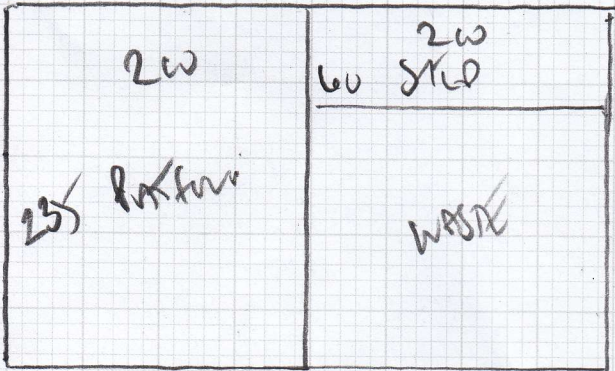 200
235 PLATFORM
200
60 STEP
WASTE